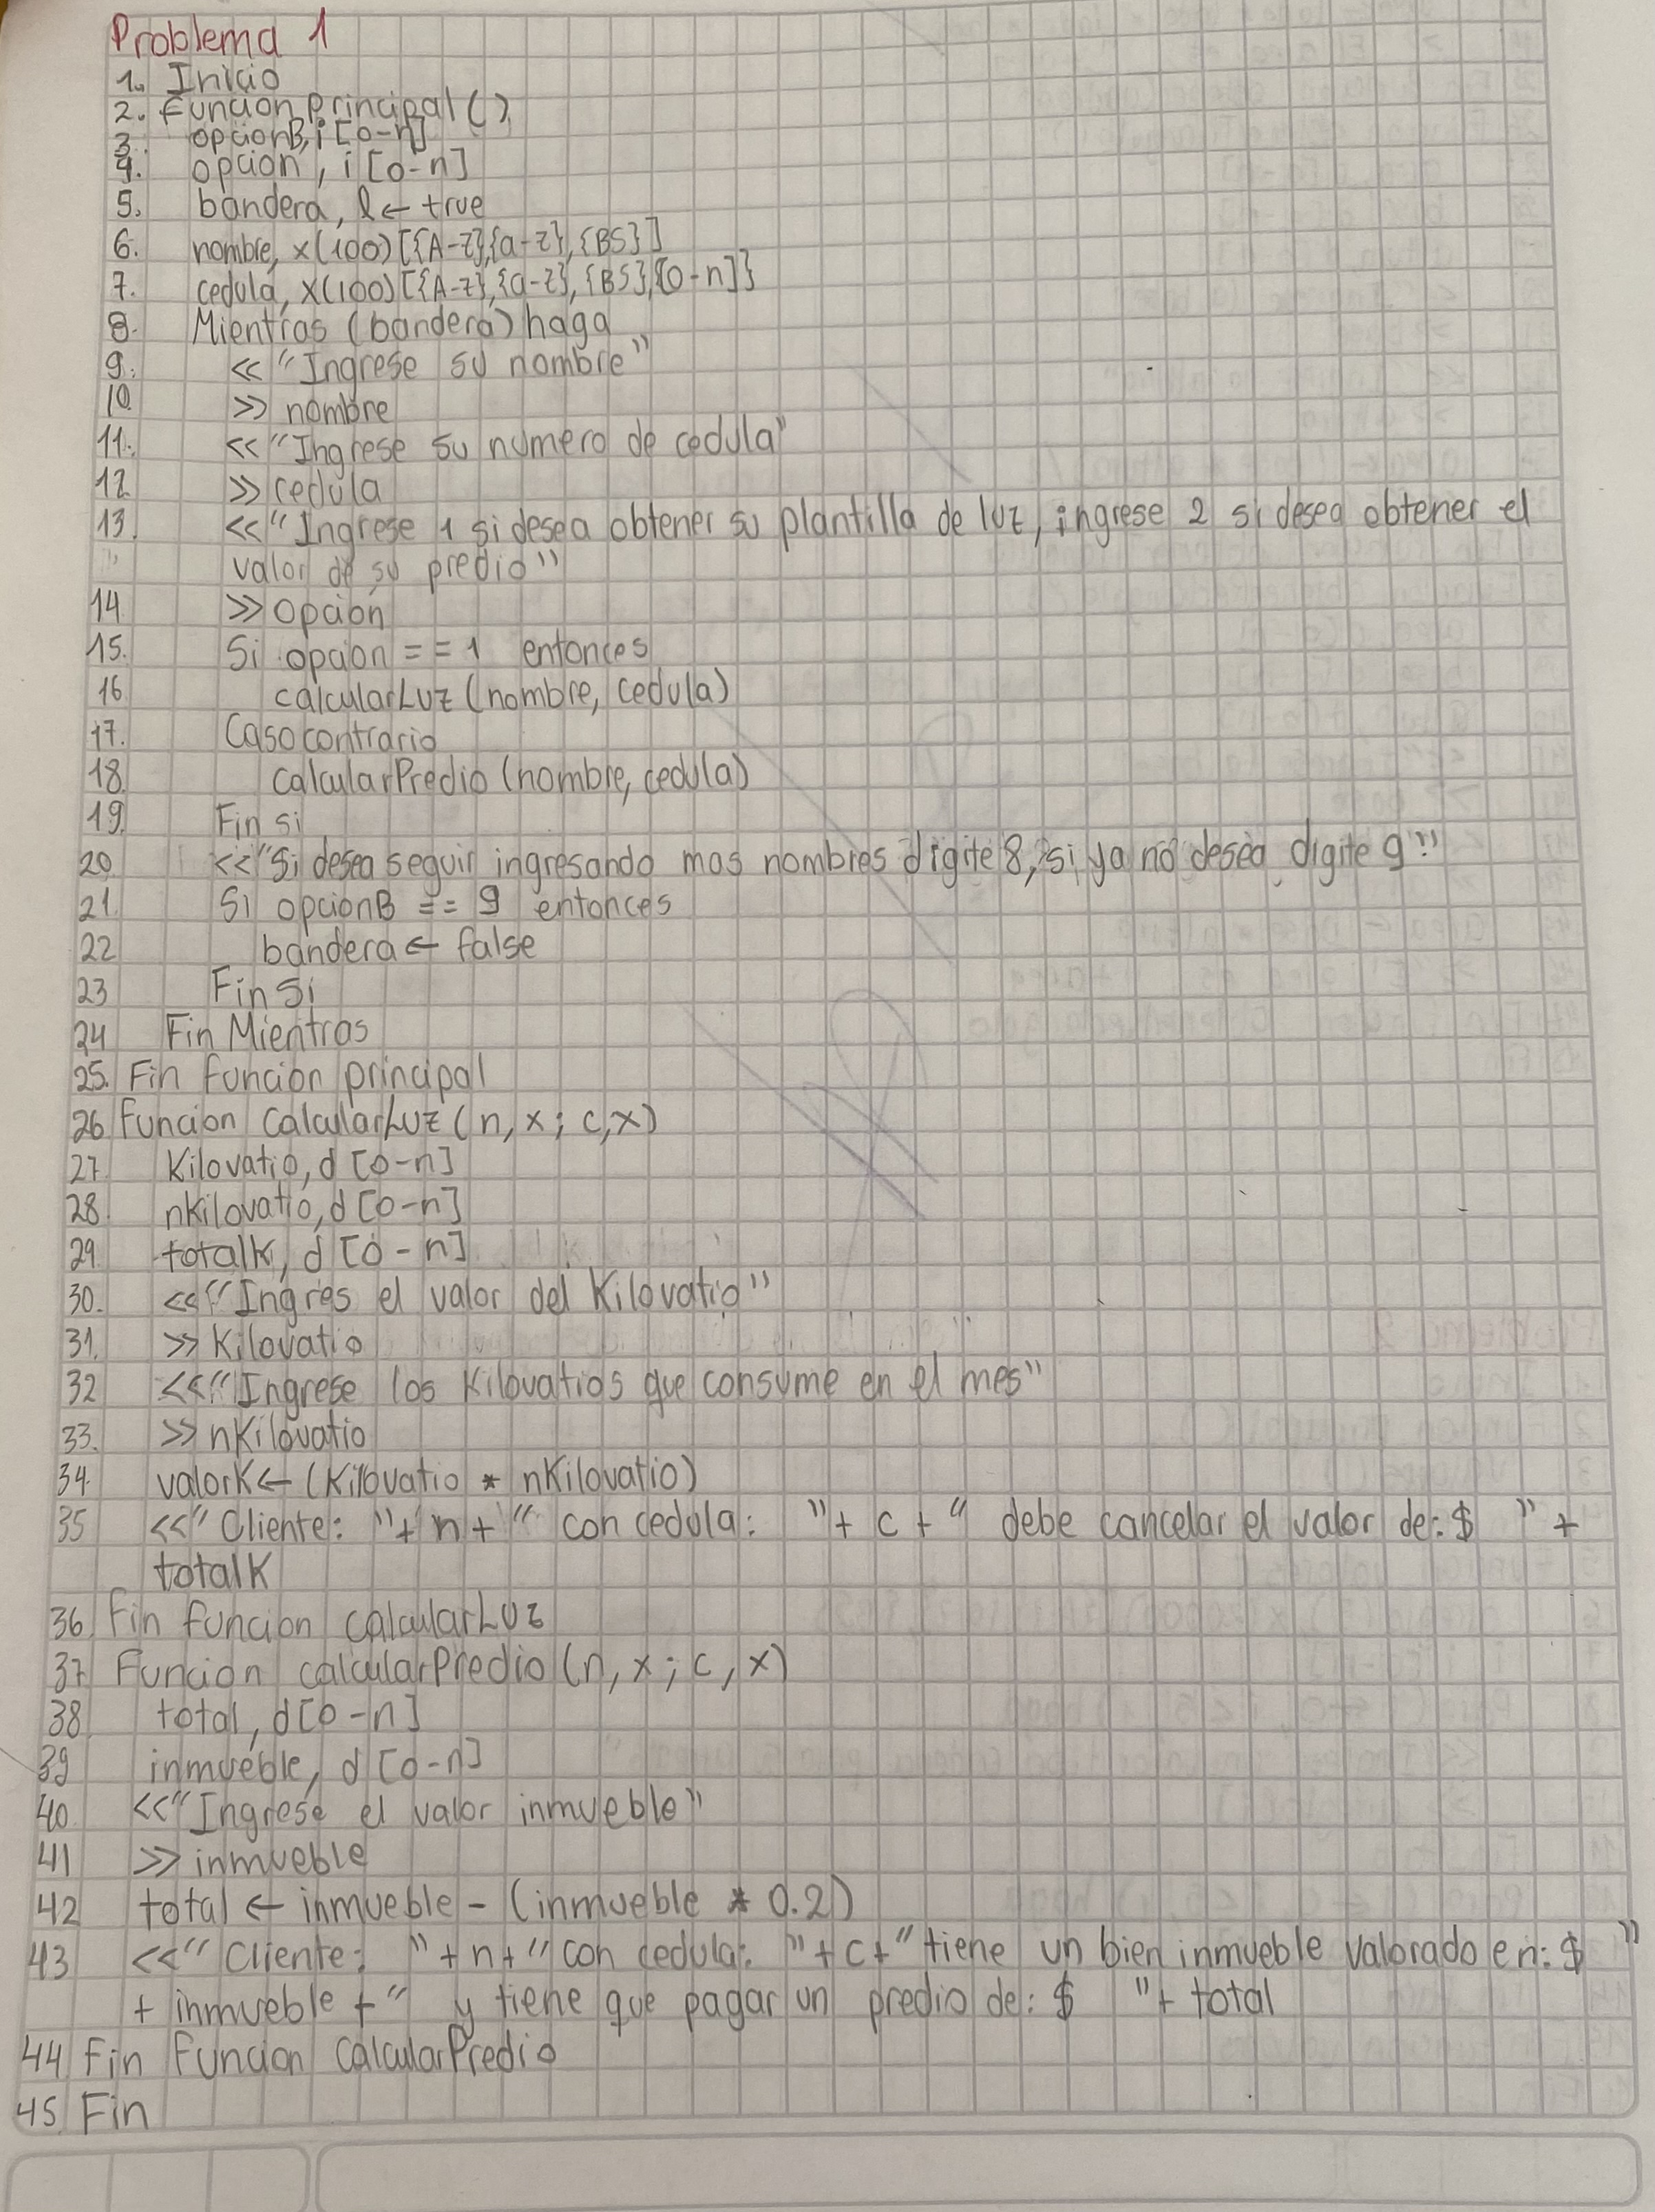 Problema 1
1. Inicio
2. Funcion Principal ()
3. opcionB, i [0-n]
4. opcion, i [0-n]
5. bandera, l ← true
6. nombre, x(100) [{A-z},{a-z}, {BS}]
7. cedula, x(100) [{A-z},{a-z}, {BS},{0-n]}
8. Mientras (bandera) haga
9. << "Ingrese su nombre"
10. >> nombre
11. << "Ingrese su numero de cedula"
12. >> cedula
13. << "Ingrese 1 si desea obtener su plantilla de luz, ingrese 2 si desea obtener el
valor de su predio"
14. >> opcion
15. Si opcion == 1 entonces
16. calcularLuz (nombre, cedula)
17. Caso contrario
18. calcularPredio (nombre, cedula)
19. Fin si
20. << "Si desea seguir ingresando mas nombres digite 8, si ya no desea digite 9"
21. Si opcionB == 9 entonces
22. bandera ← false
23 Fin Si
24 Fin Mientras
25. Fin funcion principal
26. Funcion CalcularLuz (n, x; c, x)
27. Kilovatio, d [0-n]
28. nKilovatio, d [0-n]
29. totalK, d [0-n]
30. << "Ingres el valor del Kilovatio"
31. >> Kilovatio
32 << "Ingrese los Kilovatios que consume en el mes"
33. >> nKilovatio
34. valorK ← (Kilovatio * nKilovatio)
35 << "Cliente: "+ n + " con cedula: "+ c + " debe cancelar el valor de: $ " +
totalK
36. Fin funcion calcularLuz
37. Funcion calcularPredio (n, x; c, x)
38. total, d [0-n]
39 inmueble, d [0-n]
40. << "Ingrese el valor inmueble"
41 >> inmueble
42 total ← inmueble - (inmueble * 0.2)
43 << "Cliente: "+n+" con cedula: "+c+" tiene un bien inmueble valorado en: $ "
+ inmueble + " y tiene que pagar un predio de: $ "+ total
44 Fin Funcion CalcularPredio
45. Fin